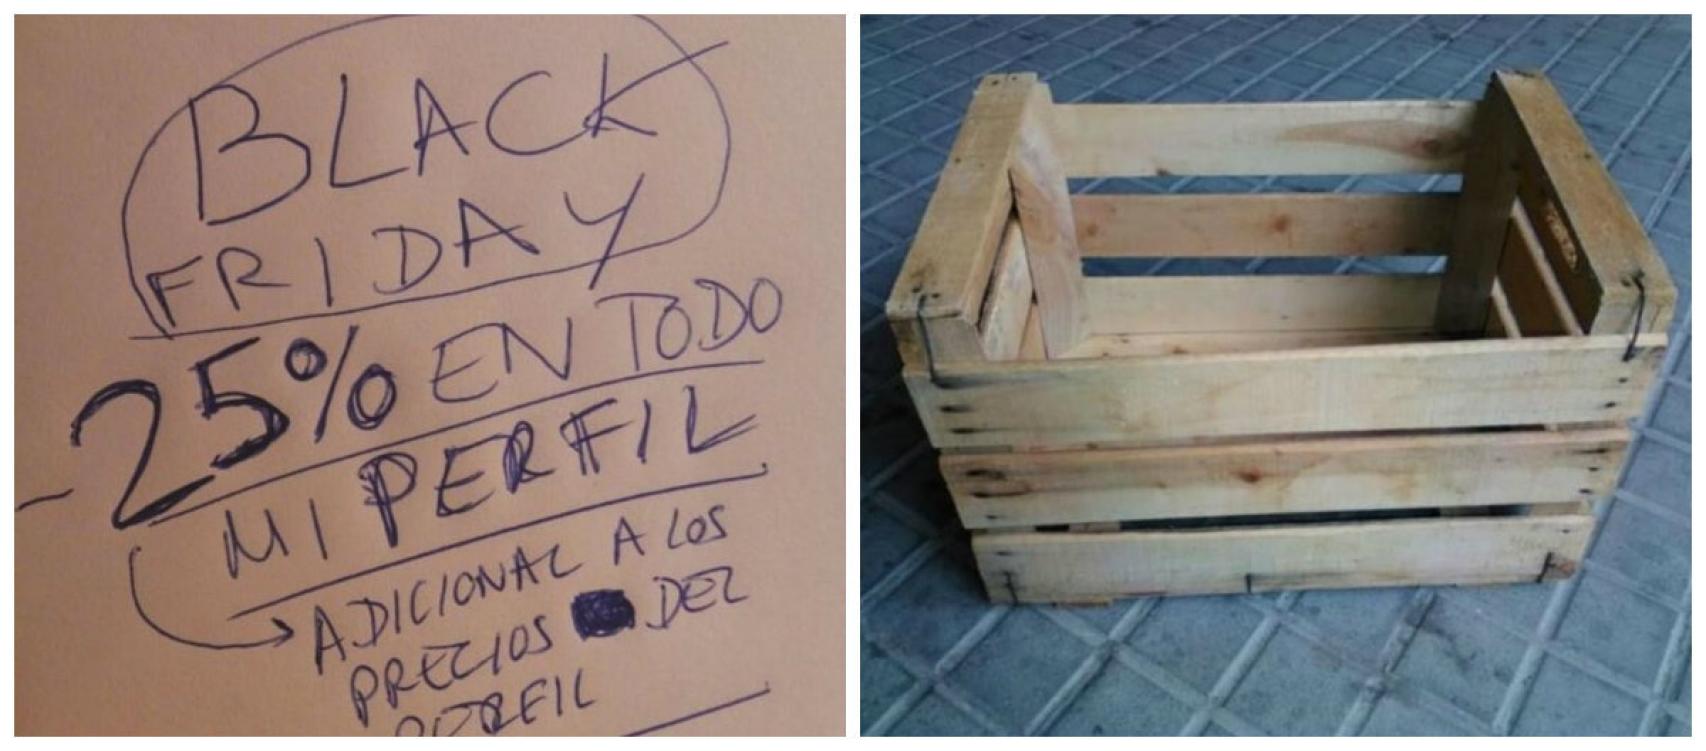 BLACK
FRIDAY
-25% EN TODO
MI PERFIL
ADICIONAL A LOS
PRECIOS DEL
PERFIL